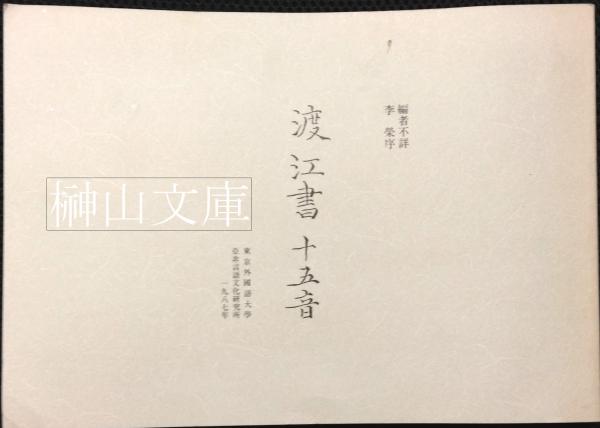 編者不詳
李榮序
渡江書十五音
東京外國語大學
亞非言語文化研究所
一九八七年
榊山文庫